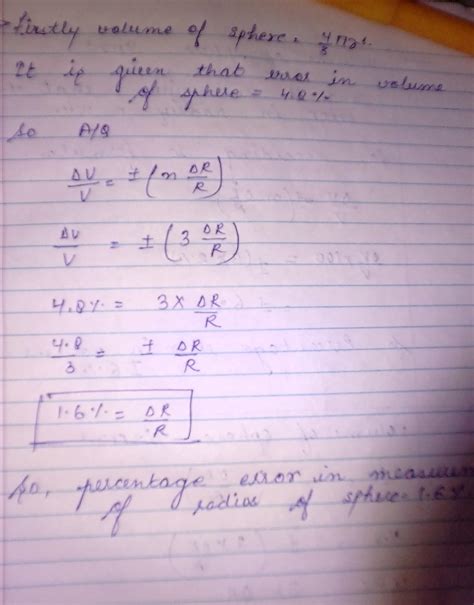 Firstly volume of sphere = 4/3 πr³.
It is given that error in volume
of sphere = 4.8%.
So A/Q
ΔV/V = ± (n ΔR/R)
ΔV/V = ± (3 ΔR/R)
4.8% = 3 × ΔR/R
4.8/3 = ± ΔR/R
1.6% = ΔR/R
So, percentage error in
of radius of sphere = 1.6%